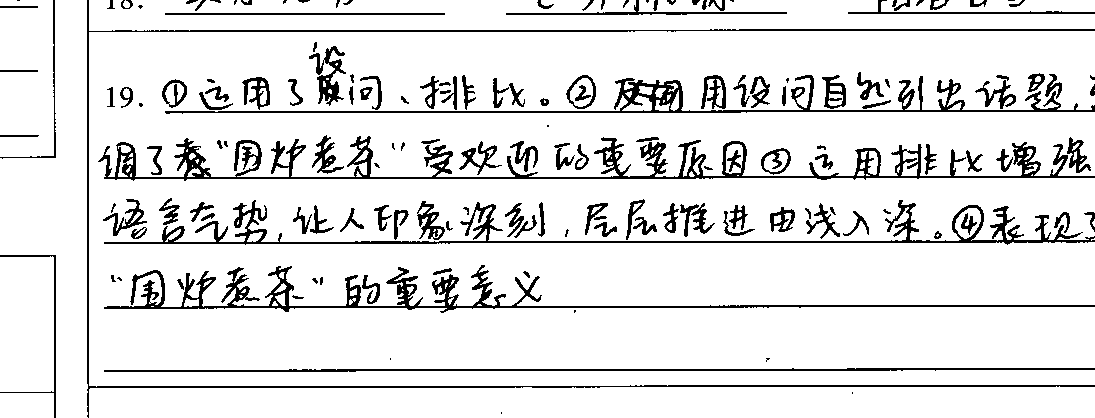 18.
19. ①运用了设问、排比。②用设问自然引出话题,
调了"围炉煮茶"受欢迎的重要原因③运用排比增强
语言气势,让人印象深刻,层层推进由浅入深。④表现了
"围炉煮茶"的重要意义